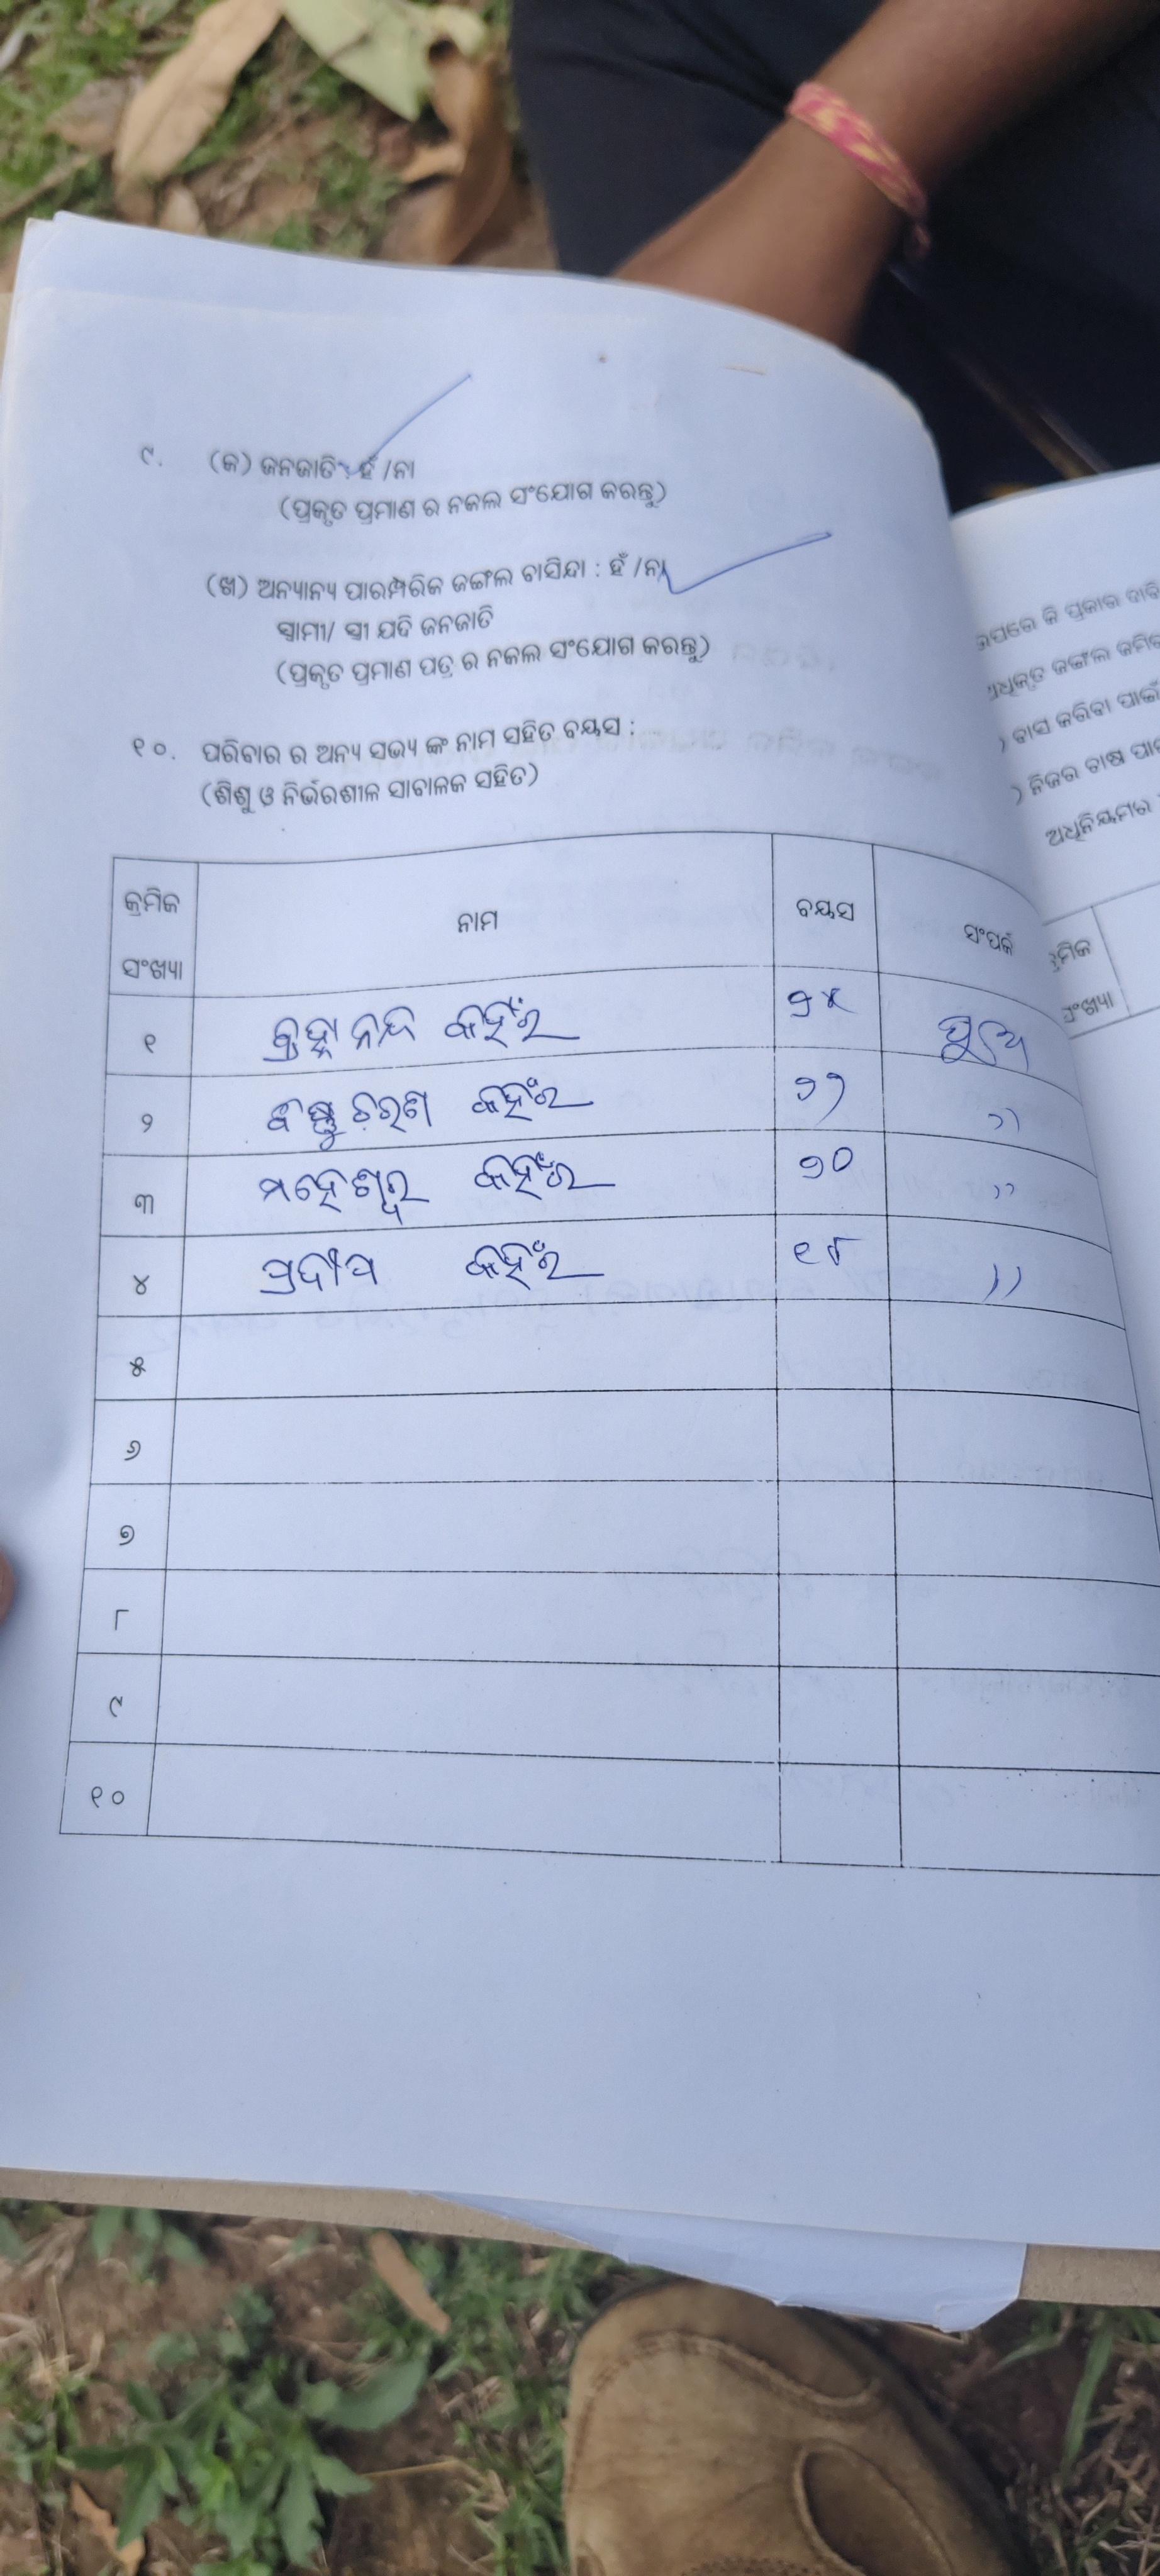 ୯. (କ) ଜନଜାତି : ହଁ /ନା
(ପ୍ରକୃତ ପ୍ରମାଣ ର ନକଲ ସଂଯୋଗ କରନ୍ତୁ)
(ଖ) ଅନ୍ୟାନ୍ୟ ପାରମ୍ପରିକ ଜଙ୍ଗଲ ବାସିନ୍ଦା : ହଁ /ନା
ସ୍ୱାମୀ/ ସ୍ତ୍ରୀ ଯଦି ଜନଜାତି
(ପ୍ରକୃତ ପ୍ରମାଣ ପତ୍ର ର ନକଲ ସଂଯୋଗ କରନ୍ତୁ)
୧୦. ପରିବାର ର ଅନ୍ୟ ସଭ୍ୟ ଙ୍କ ନାମ ସହିତ ବୟସ :
(ଶିଶୁ ଓ ନିର୍ଭରଶୀଳ ସାବାଳକ ସହିତ)
କ୍ରମିକ ସଂଖ୍ୟା ନାମ ବୟସ ସଂପର୍କ
୧ ବ୍ରହ୍ମାନନ୍ଦ କହଁର ୨୪ ପୁଅ
୨ ବିଷ୍ଣୁ ଚରଣ କହଁର ୨୨ ,,
୩ ମହେଶ୍ୱର କହଁର ୨୦ ,,
୪ ପ୍ରଦୀପ କହଁର ୧୮ ,,
୫
୬
୭
୮
୯
୧୦
କି ପ୍ରକାର
ଜଙ୍ଗଲ
) ବାସ କରିବା ପାଇଁ
) ନିଜର ଚାଷ
ଅଧିନିୟମର
କ୍ରମିକ
ସଂଖ୍ୟା